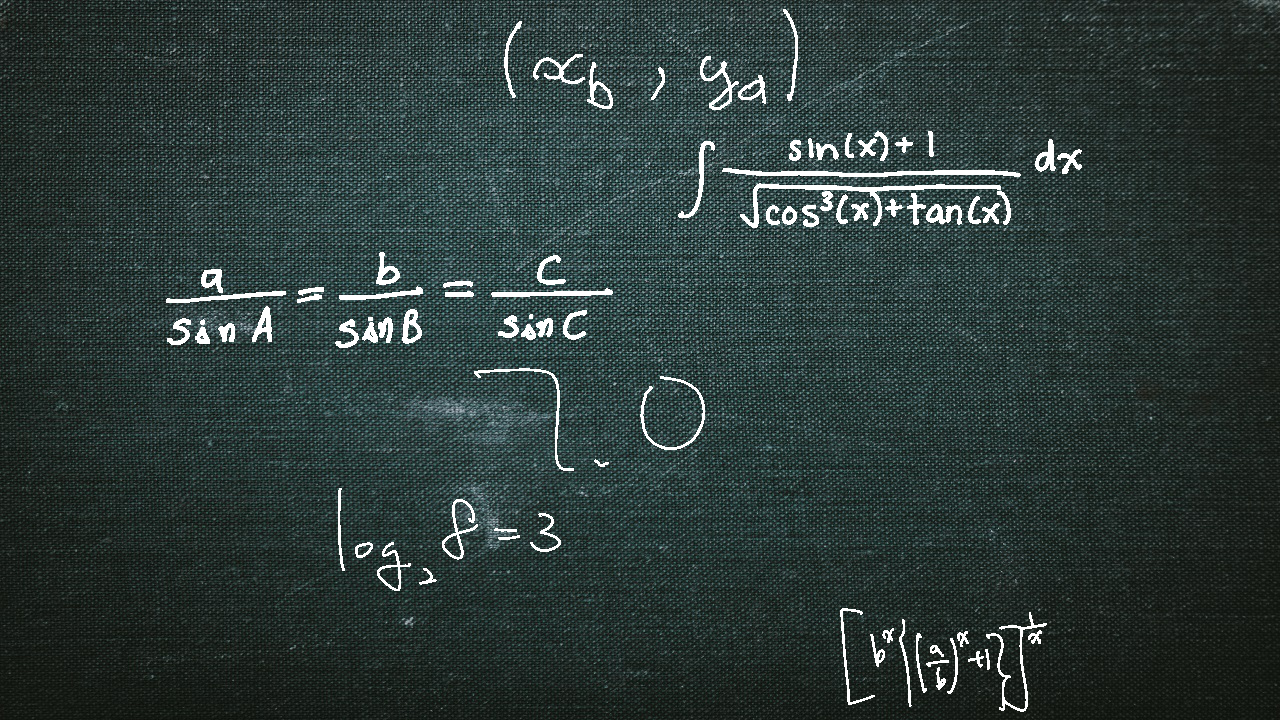 (x_b, y_a)
∫ (sin(x)+1)/(√(cos³(x)+tan(x))) dx
a/(sin A) = b/(sin B) = c/(sin C)
7.0
log₂ 8 = 3
[b^x{(a/b)^x+1}]^(1/x)